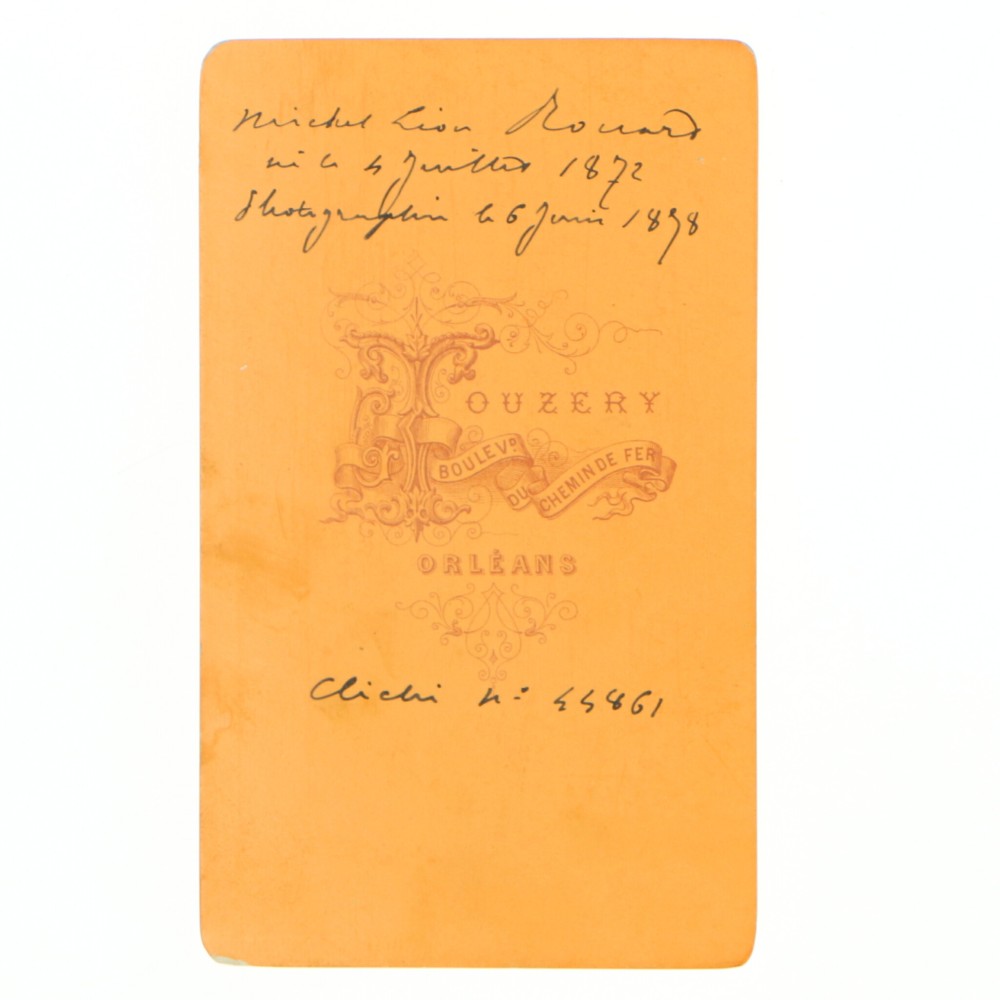 Michel Léon Rouard
né le 4 Juillet 1872
Photographié le 6 Juin 1878
TOUZERY
BOULEVD DU CHEMIN DE FER
ORLÉANS
Cliché No 44861